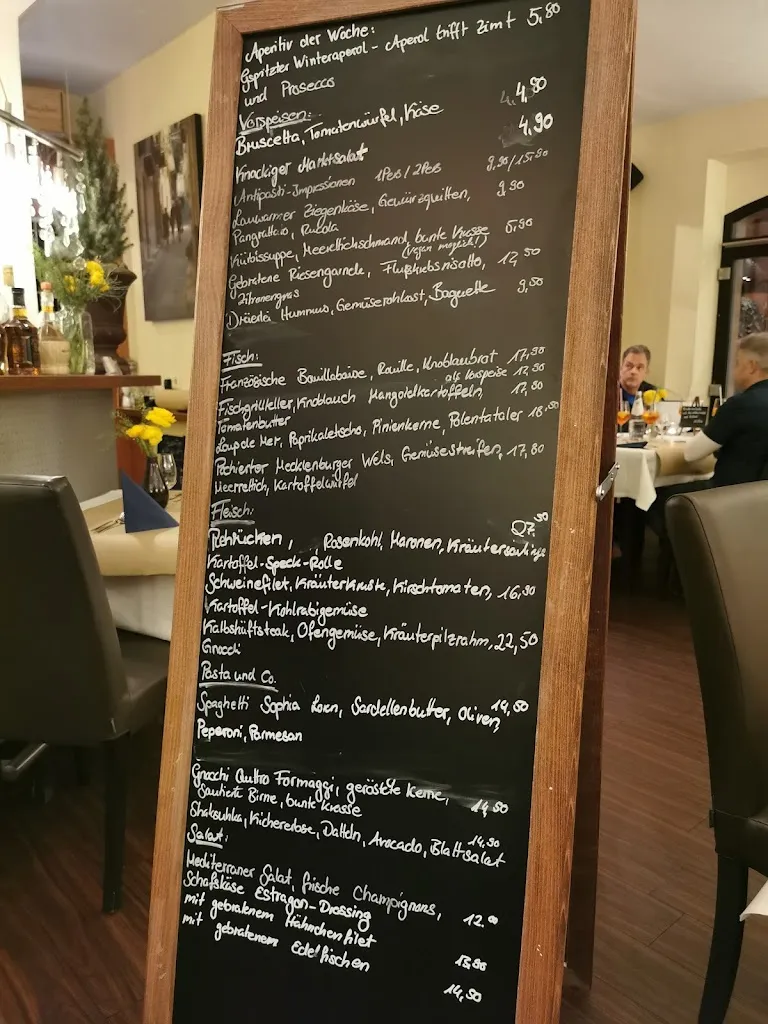 Aperitiv der Woche:
Gspritzter Winteraperol - Aperol trifft Zimt 5,80
und Prosecco
Vorspeisen:
Bruscetta, Tomatenwürfel, Käse 4,80
Knackiger Marktsalat 4,90
Antipasti-Impressionen 1Pers / 2Pers 9,90/15,90
Lauwarmer Ziegenkäse, Gewürzquitten, 9,90
Pangrattato, Rucola
Kürbissuppe, Meerettichschmand, bunte Kresse 5,90
(vegan möglich!)
Gebratene Riesengarnele, Flußkrebsrisotto, 12,50
Zitronengras
Dreierlei Hummus, Gemüserohkost, Baguette 9,50
Fisch:
Französische Bouillabaise, Rouille, Knoblaubrot 17,90
als Vorspeise 12,90
Fischgrillteller, Knoblauch Mangoldkartoffeln, 17,80
Tomatenbutter
Loup de Mer, Paprikaletscho, Pinienkerne, Polentataler 18,50
Pochierter Mecklenburger Wels, Gemüsestreifen, 17,80
Meerrettich, Kartoffelwürfel
Fleisch:
Rehrücken, Rosenkohl, Maronen, 27,50
Kartoffel-Speck-Rolle
Schweinefilet, Kräuterkruste, Kirschtomaten, 16,90
Kartoffel-Kohlrabigemüse
Kalbshüftsteak, Ofengemüse, Kräuterpilzrahm, 22,50
Gnocchi
Pasta und Co.
Spaghetti Sophia Loren, Sardellenbutter, Oliven, 14,50
Peperoni, Parmesan
Gnocchi Quttro Formaggi, geröstete Kerne, 14,50
Sautierte Birne, bunte Kresse
Shaksuhka, Kichererbse, Datteln, Avocado, Blattsalat 14,50
Salat:
Mediterraner Salat, frische Champignons, 12.00
Schafskäse Estragon-Dressing
mit gebratenem Hähnchenfilet 13,90
mit gebratenem Edelfischen 14,50